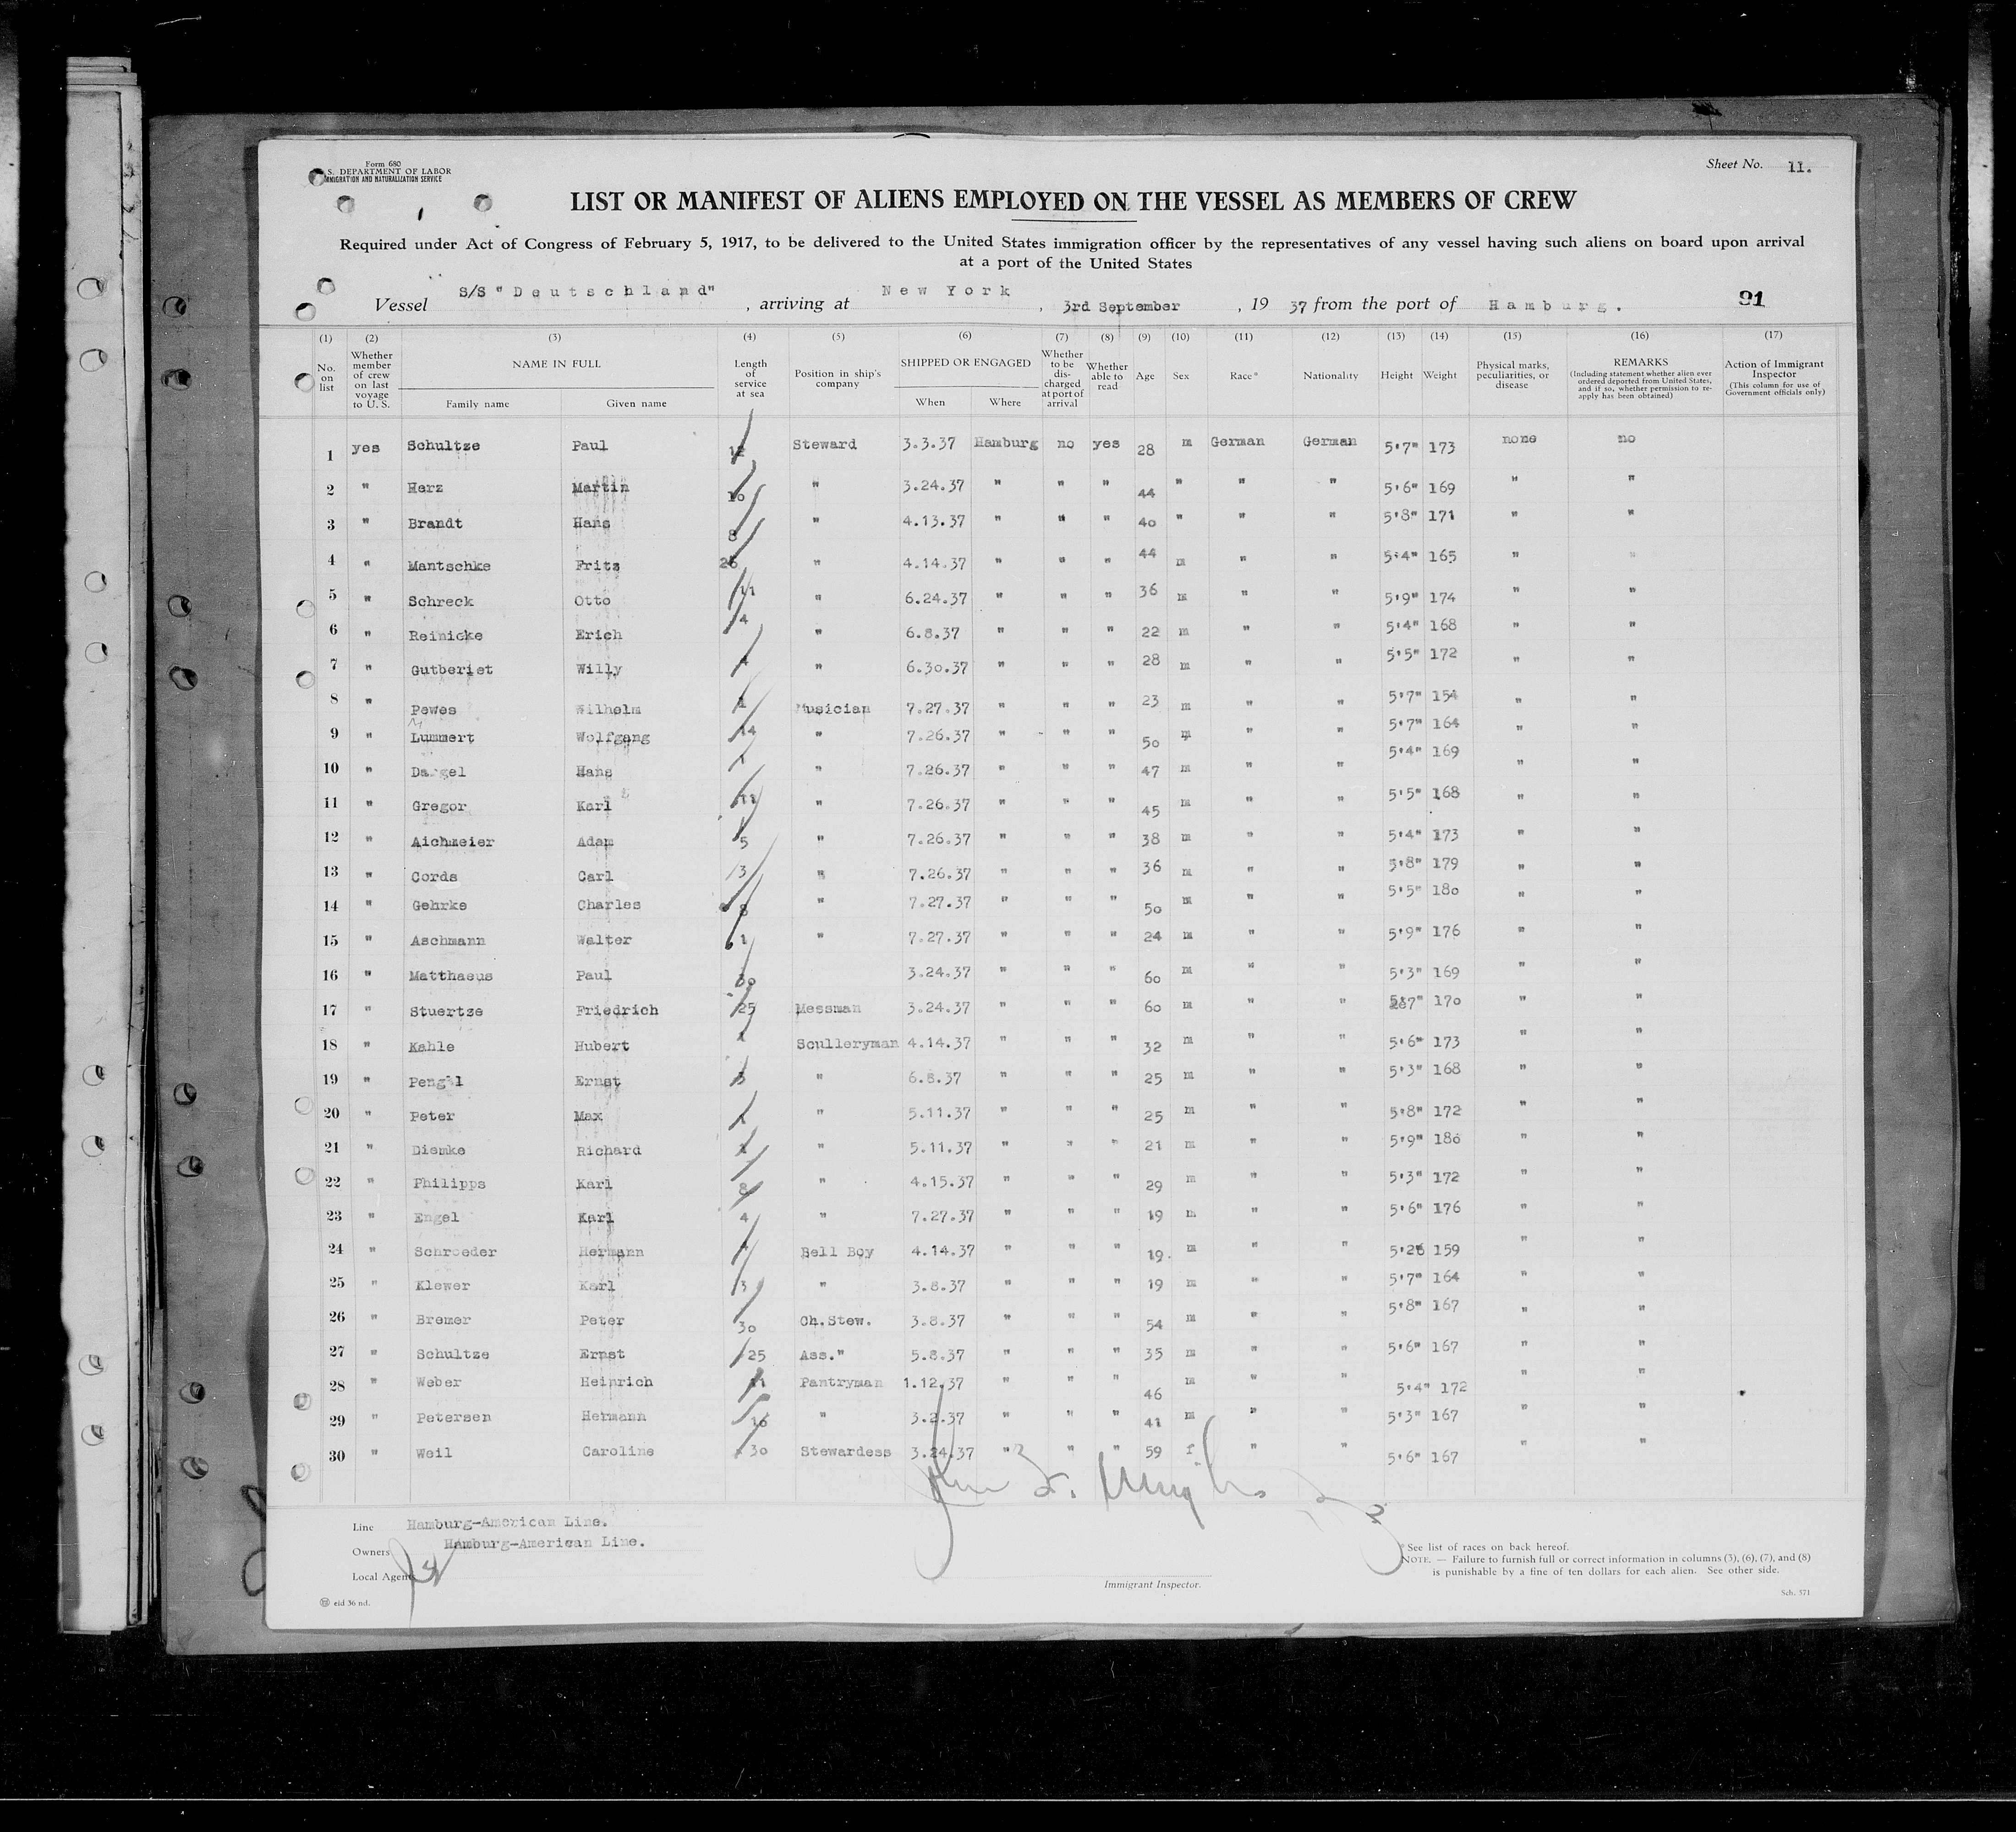 Form 680
S. DEPARTMENT OF LABOR
IMMIGRATION AND NATURALIZATION SERVICE
Sheet No. 11.
LIST OR MANIFEST OF ALIENS EMPLOYED ON THE VESSEL AS MEMBERS OF CREW
Required under Act of Congress of February 5, 1917, to be delivered to the United States immigration officer by the representatives of any vessel having such aliens on board upon arrival
at a port of the United States
Vessel S/S "Deutschland" , arriving at New York , 3rd September , 19 37 from the port of Hamburg. 91
(1) (2) (3) (4) (5) (6) (7) (8) (9) (10) (11) (12) (13) (14) (15) (16) (17)
No. on list Whether member of crew on last voyage to U. S. NAME IN FULL Family name Given name Length of service at sea Position in ship's company SHIPPED OR ENGAGED When Where Whether to be discharged at port of arrival Whether able to read Age Sex Race* Nationality Height Weight Physical marks, peculiarities, or disease REMARKS (Including statement whether alien ever ordered deported from United States, and if so, whether permission to reapply has been obtained) Action of Immigrant Inspector (This column for use of Government officials only)
1 yes Schultze Paul 12 Steward 3.3.37 Hamburg no yes 28 m German German 5'7" 173 none no
2 " Harz Martin 10 " 3.24.37 " " " 44 " " " 5'6" 169 " "
3 " Brandt Hans 8 " 4.13.37 " " " 40 " " " 5'8" 171 " "
4 " Mantschke Fritz 26 " 4.14.37 " " " 44 m " " 5'4" 165 " "
5 " Schreck Otto 11 " 6.24.37 " " " 36 m " " 5'9" 174 " "
6 " Reinicke Erich 4 " 6.8.37 " " " 22 m " " 5'4" 168 " "
7 " Gutberlet Willy 4 " 6.30.37 " " " 28 m " " 5'5" 172 " "
8 " Pewes Wilhelm 1 Musician 7.27.37 " " " 23 m " " 5'7" 154 " "
9 " Lummert Wolfgang 14 " 7.26.37 " " " 50 m " " 5'7" 164 " "
10 " Dargel Hans 1 " 7.26.37 " " " 47 m " " 5'4" 169 " "
11 " Gregor Karl 11 " 7.26.37 " " " 45 m " " 5'5" 168 " "
12 " Aichmeier Adam 5 " 7.26.37 " " " 38 m " " 5'4" 173 " "
13 " Cords Carl 3 " 7.26.37 " " " 36 m " " 5'8" 179 " "
14 " Gehrke Charles 8 " 7.27.37 " " " 50 m " " 5'5" 180 " "
15 " Aschmann Walter 1 " 7.27.37 " " " 24 m " " 5'9" 176 " "
16 " Matthaeus Paul 30 3.24.37 " " " 60 m " " 5'3" 169 " "
17 " Stuertze Friedrich 25 Messman 3.24.37 " " " 60 m " " 5'7" 170 " "
18 " Kahle Hubert 1 Sculleryman 4.14.37 " " " 32 m " " 5'6" 173 " "
19 " Pengel Ernst 3 " 6.8.37 " " " 25 m " " 5'3" 168 " "
20 " Peter Max 1 " 5.11.37 " " " 25 m " " 5'8" 172 " "
21 " Diemke Richard 1 " 5.11.37 " " " 21 m " " 5'9" 180 " "
22 " Philipps Karl 8 " 4.15.37 " " " 29 m " " 5'3" 172 " "
23 " Engel Karl 4 " 7.27.37 " " " 19 m " " 5'6" 176 " "
24 " Schroeder Hermann 4 Bell Boy 4.14.37 " " " 19. m " " 5'2" 159 " "
25 " Klewer Karl 3 " 3.8.37 " " " 19 m " " 5'7" 164 " "
26 " Bremer Peter 30 Ch.Stew. 3.8.37 " " " 54 m " " 5'8" 167 " "
27 " Schultze Ernst 25 Ass." 5.8.37 " " " 35 m " " 5'6" 167 " "
28 " Weber Heinrich 11 Pantryman 1.12.37 " " " 46 m " " 5'4" 172 " "
29 " Petersen Hermann 16 " 3.2.37 " " " 41 m " " 5'3" 167 " "
30 " Weil Caroline 30 Stewardess 3.24.37 " " " 59 f " " 5'6" 167 " "
Line Hamburg-American Line.
Owners Hamburg-American Line.
Local Agents
Immigrant Inspector.
* See list of races on back hereof.
NOTE. — Failure to furnish full or correct information in columns (3), (6), (7), and (8)
is punishable by a fine of ten dollars for each alien. See other side.
eid 36 nd.
Sch. 571